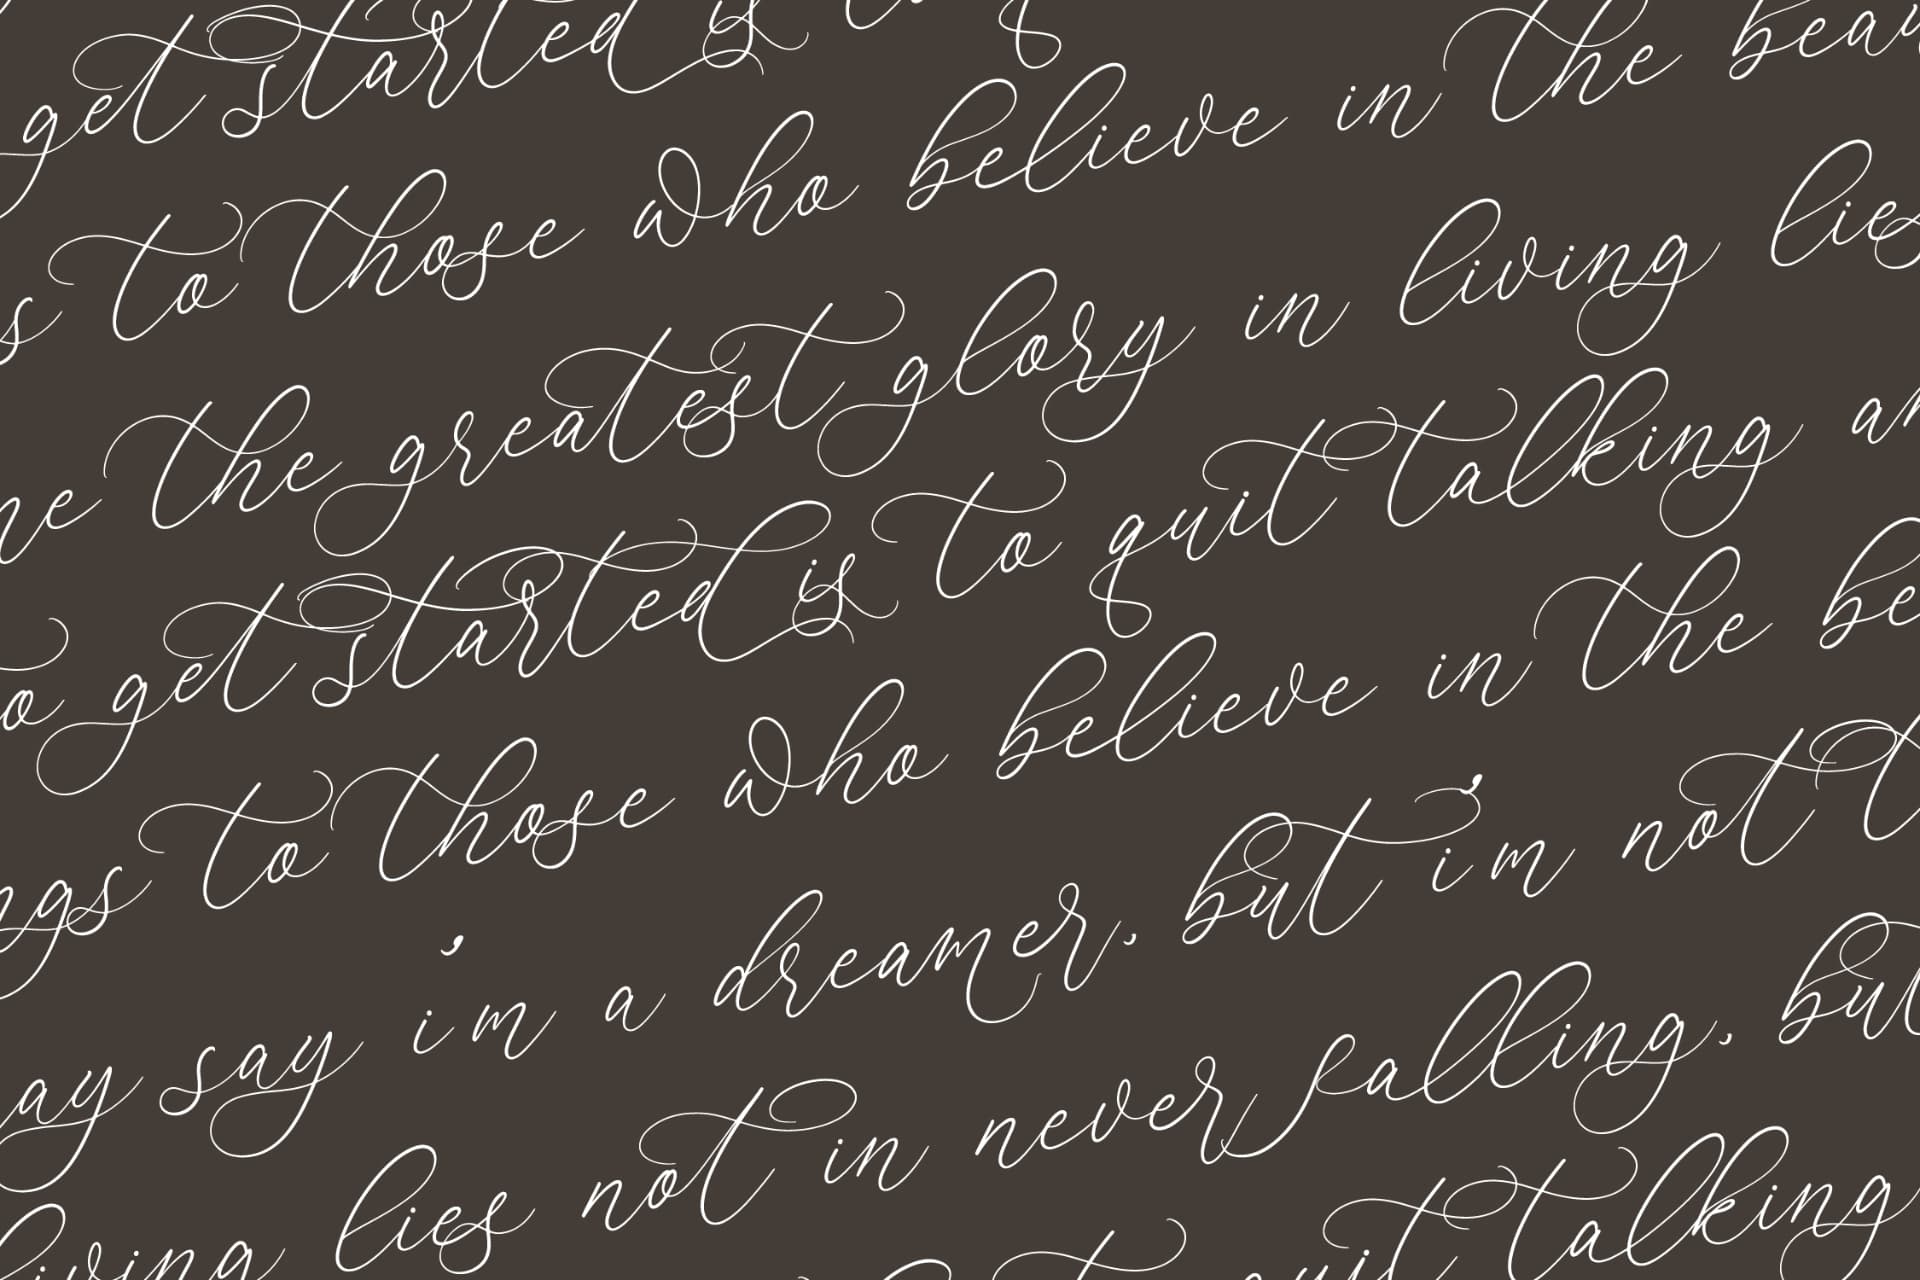 get started is
to those who believe in the beau
the greatest glory in living lies
get started is to quit talking an
to those who believe in the be
ngs to those who believe in the be
ay say i'm a dreamer, but i'm not t
living lies not in never falling, but
quit talking